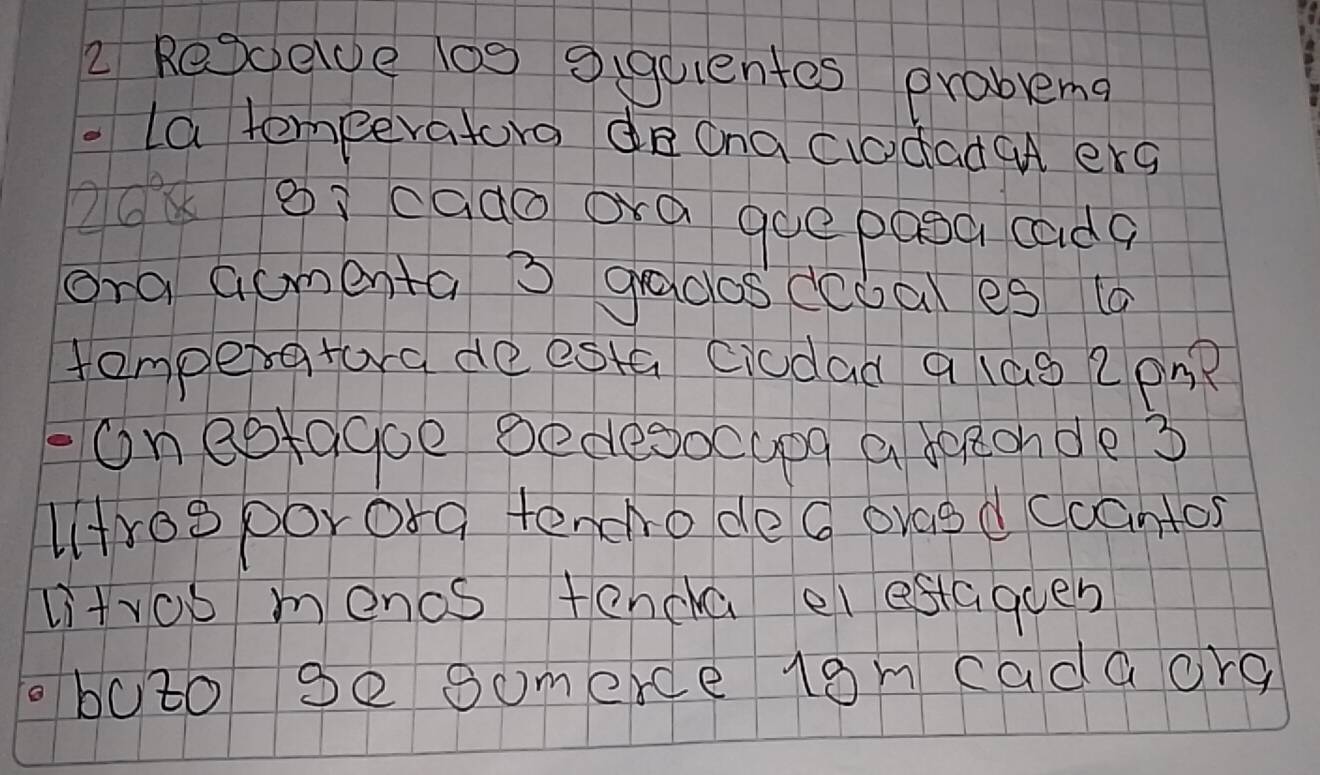 2 Resoelve los sigcientes prablema
• la temperatora de ona ciodad erg
si cado ora qce pasa cada
ora acmenta 3 grados dccal es la
temperatora de esta ciodad a las 2 pm?
• On estaqoe sedesocupa a razon de 3
litros por ora tendro de 6 oras d Coantos
litros menos tendra el estaqoen
• bozo se somerce 18m cada ora